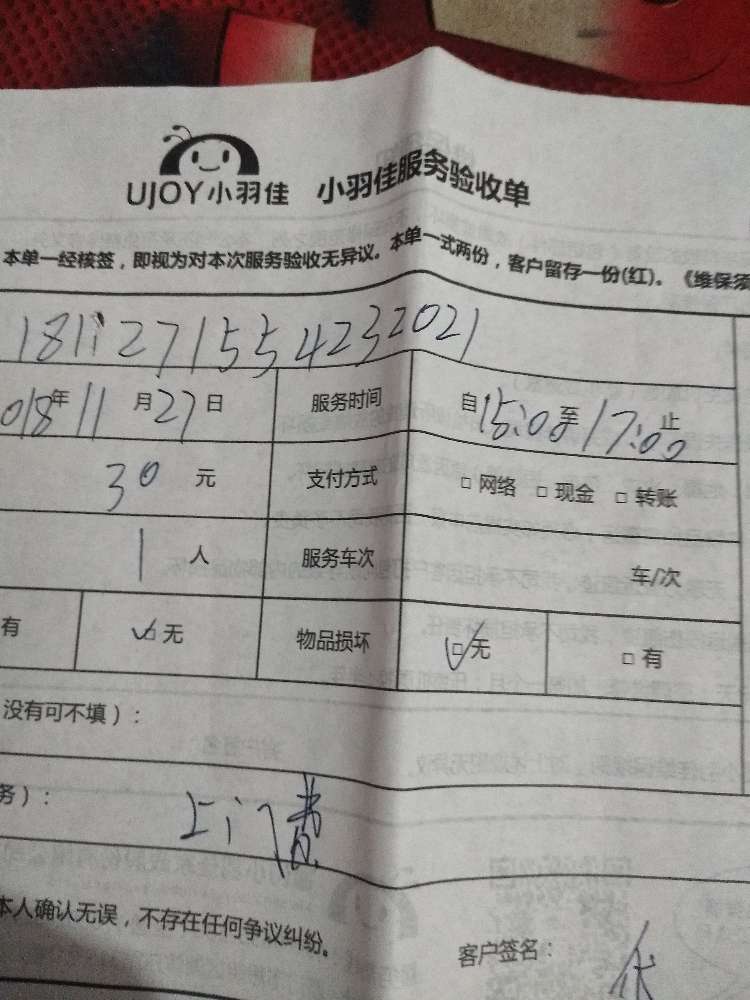 UJOY小羽佳 小羽佳服务验收单
本单一经核签，即视为对本次服务验收无异议。本单一式两份，客户留存一份(红)。《维保须
181127155423​2021
018年11月27日 服务时间 自15:00至17:00止
30元 支付方式 □ 网络 □ 现金 □ 转账
1人 服务车次 车/次
有 □ 无 物品损坏 □ 无 □ 有
没有可不填）：
务）： 上门费
本人确认无误，不存在任何争议纠纷。
客户签名：